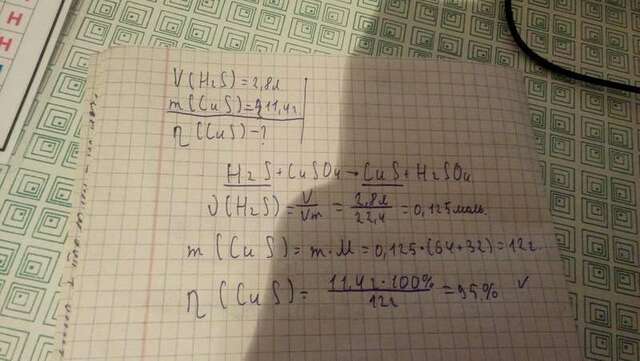 V(H₂S)=2,8л
m(CuS)=11,4г
η(CuS)-?
H₂S+CuSO₄→CuS+H₂SO₄
ν(H₂S)=V/Vm=2,8л/22,4=0,125моль.
m(CuS)=m·M=0,125·(64+32)=12г
η(CuS)=11,4г·100%/12г=95% v